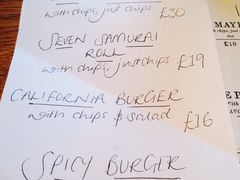 with chips, just chips. £30
SEVEN SAMURAI
ROLL
with chips, just chips £19
CALIFORNIA BURGER
with chips & salad £16
SPICY BURGER
MAYF